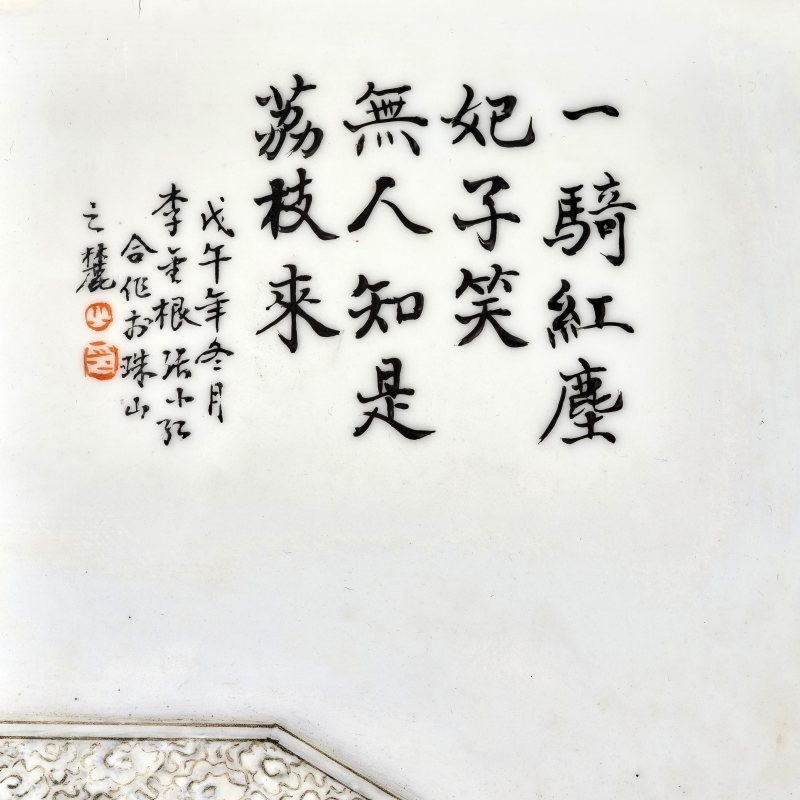 一騎紅塵
妃子笑
無人知是
荔枝來
戊午年冬月
李金根張小紅
合作於珠山
之麓